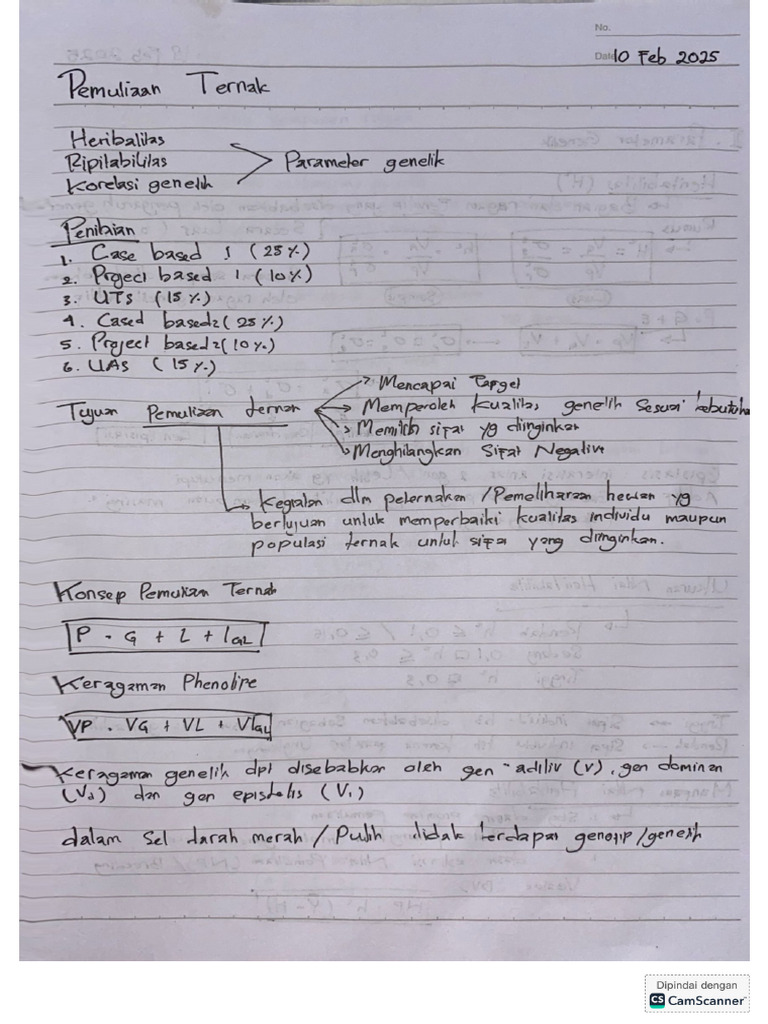 No.
Date 10 Feb 2025
Pemuliaan Ternak
Heribalitas
Ripilabililas
Korelasi genelik
Parameter genelik
Penilaian
1. Case based 1 (25%)
2. Project based 1 (10%)
3. UTS (15%)
4. Cased based 2 (25%)
5. Project based 2 (10%)
6. UAS (15%)
Tujuan Pemuliaan ternak
Mencapai Target
Memperoleh Kualitas genetik Sesuai kebutuhan
Memilih sifat yg diinginkan
Menghilangkan Sifat Negative
Kegiatan dlm peternakan / Pemeliharaan hewan yg
bertujuan untuk memperbaiki kualitas individu maupun
populasi ternak untuk sifat yang diinginkan.
Konsep Pemuliaan Ternak
P = G + L + IGL
Keragaman Phenotipe
VP = VG + VL + VIGL
Keragaman genetik dpt disebabkan oleh gen aditiv (V), gen dominan
(Vd) dan gen epistelis (Vi)
dalam Sel darah merah / Putih tidak terdapat genotip/genetik
Dipindai dengan
CS CamScanner